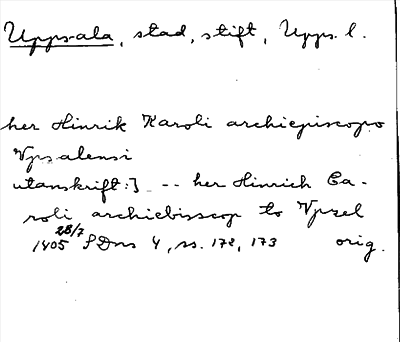 Uppsala, stad, stift, Upps. l.
her Hinrik Karoli archiepiscopo
Vpsalensi
utanskrift:] -- her Hinrich Ca-
roli archiebisscop to Vpsel
1405 28/7 SDns 4, ss. 172, 173 orig.